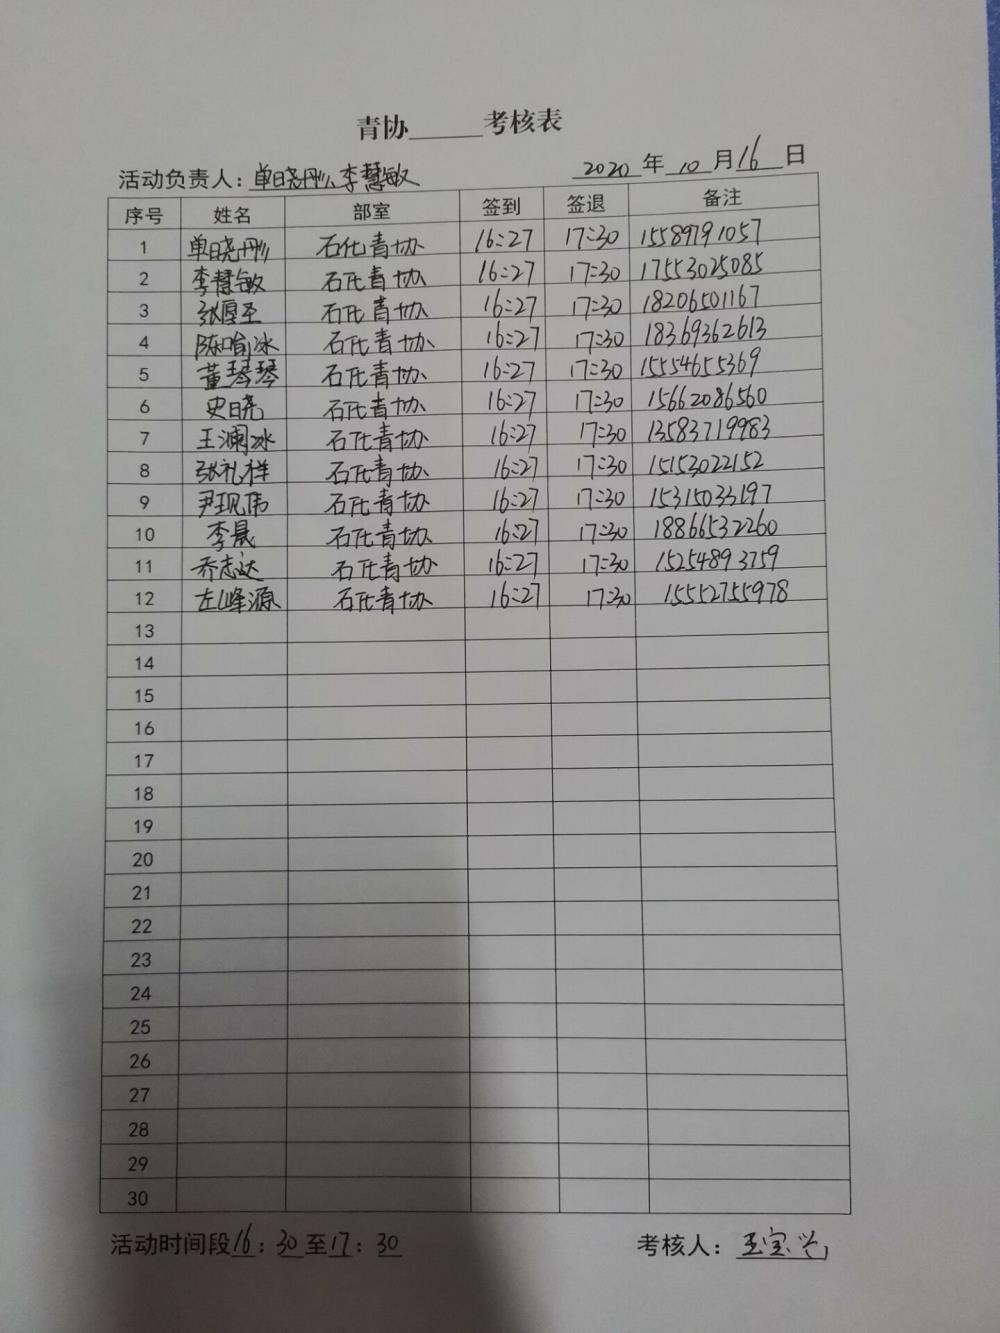 青协______考核表
活动负责人：单晓彤、李慧敏 2020 年 10 月 16 日
序号 姓名 部室 签到 签退 备注
1 单晓彤 石化青协 16:27 17:30 15589791057
2 李慧敏 石化青协 16:27 17:30 17553025085
3 张厚圣 石化青协 16:27 17:30 18206501167
4 陈喻冰 石化青协 16:27 17:30 18369362613
5 董琴琴 石化青协 16:27 17:30 15554655369
6 史晓 石化青协 16:27 17:30 15662086560
7 王澜冰 石化青协 16:27 17:30 13583719983
8 张礼样 石化青协 16:27 17:30 15153022152
9 尹现伟 石化青协 16:27 17:30 15315033197
10 李晟 石化青协 16:27 17:30 18866532260
11 乔志达 石化青协 16:27 17:30 15254893759
12 左峰源 石化青协 16:27 17:30 15552755978
13
14
15
16
17
18
19
20
21
22
23
24
25
26
27
28
29
30
活动时间段16：30至17：30 考核人：王宝兴